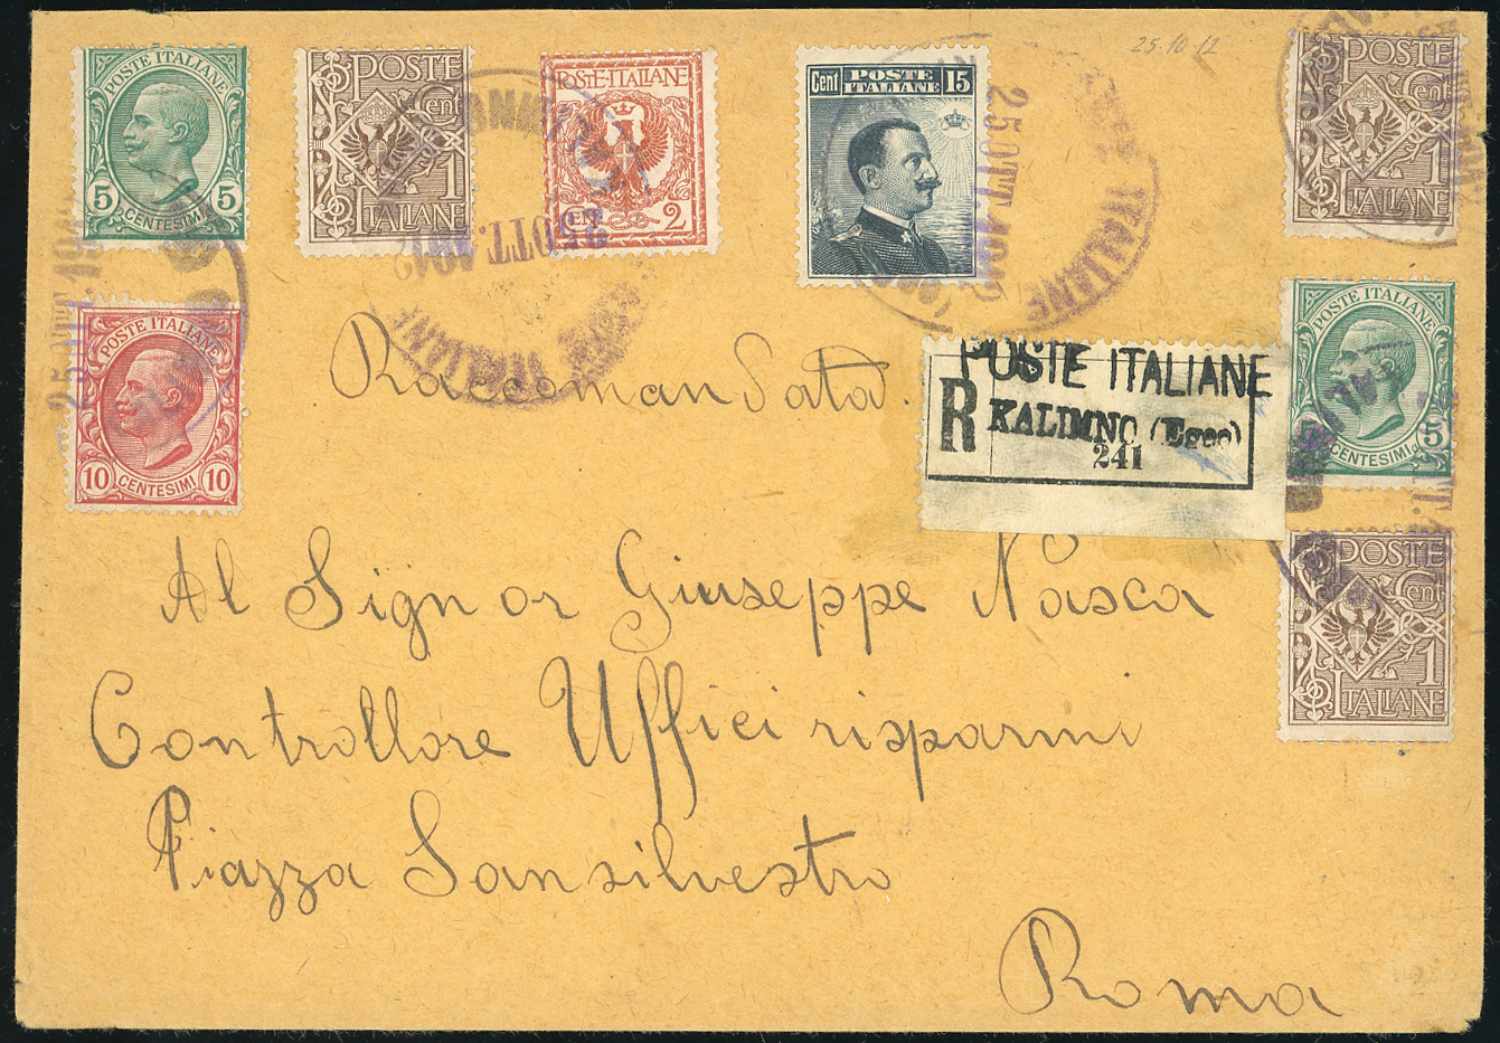 25.10.12
POSTE ITALIANE
5 5
CENTESIMI
POSTE
Cent
1
ITALIANE
POSTE·ITALIANE
CENT. 2
Cent POSTE ITALIANE 15
POSTE
Cent
1
ITALIANE
25 OTT. 1912
POSTE ITALIANE
25 OTT. 1912
POSTE ITALIANE
POSTE ITALIANE
10 10
CENTESIMI
Raccomandata.
POSTE ITALIANE
R KALIMNO (Egeo)
241
POSTE ITALIANE
5 5
CENTESIMI
POSTE
Cent
1
ITALIANE
Al Signor Giuseppe Nasca
Controllore Uffici risparmi
Piazza Sansilvestro
Roma